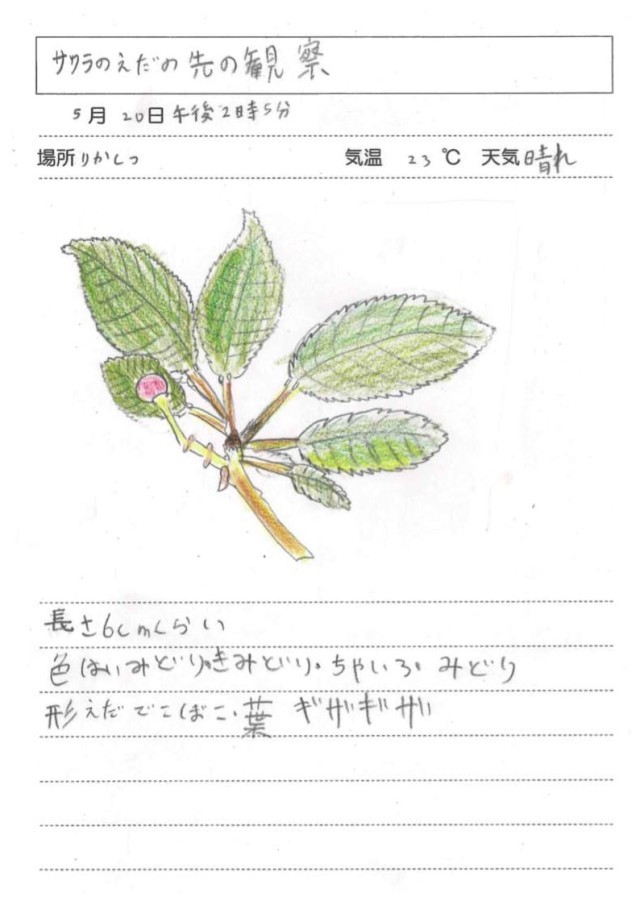 サクラのえだの先の観察
5月 20日 午後2時5分
場所 りかしつ 気温 23 ℃ 天気 晴れ
長さ6cmくらい
色 はいみどり・きみどり・ちゃいろ・みどり
形 えだ でこぼこ・葉 ギザギザ